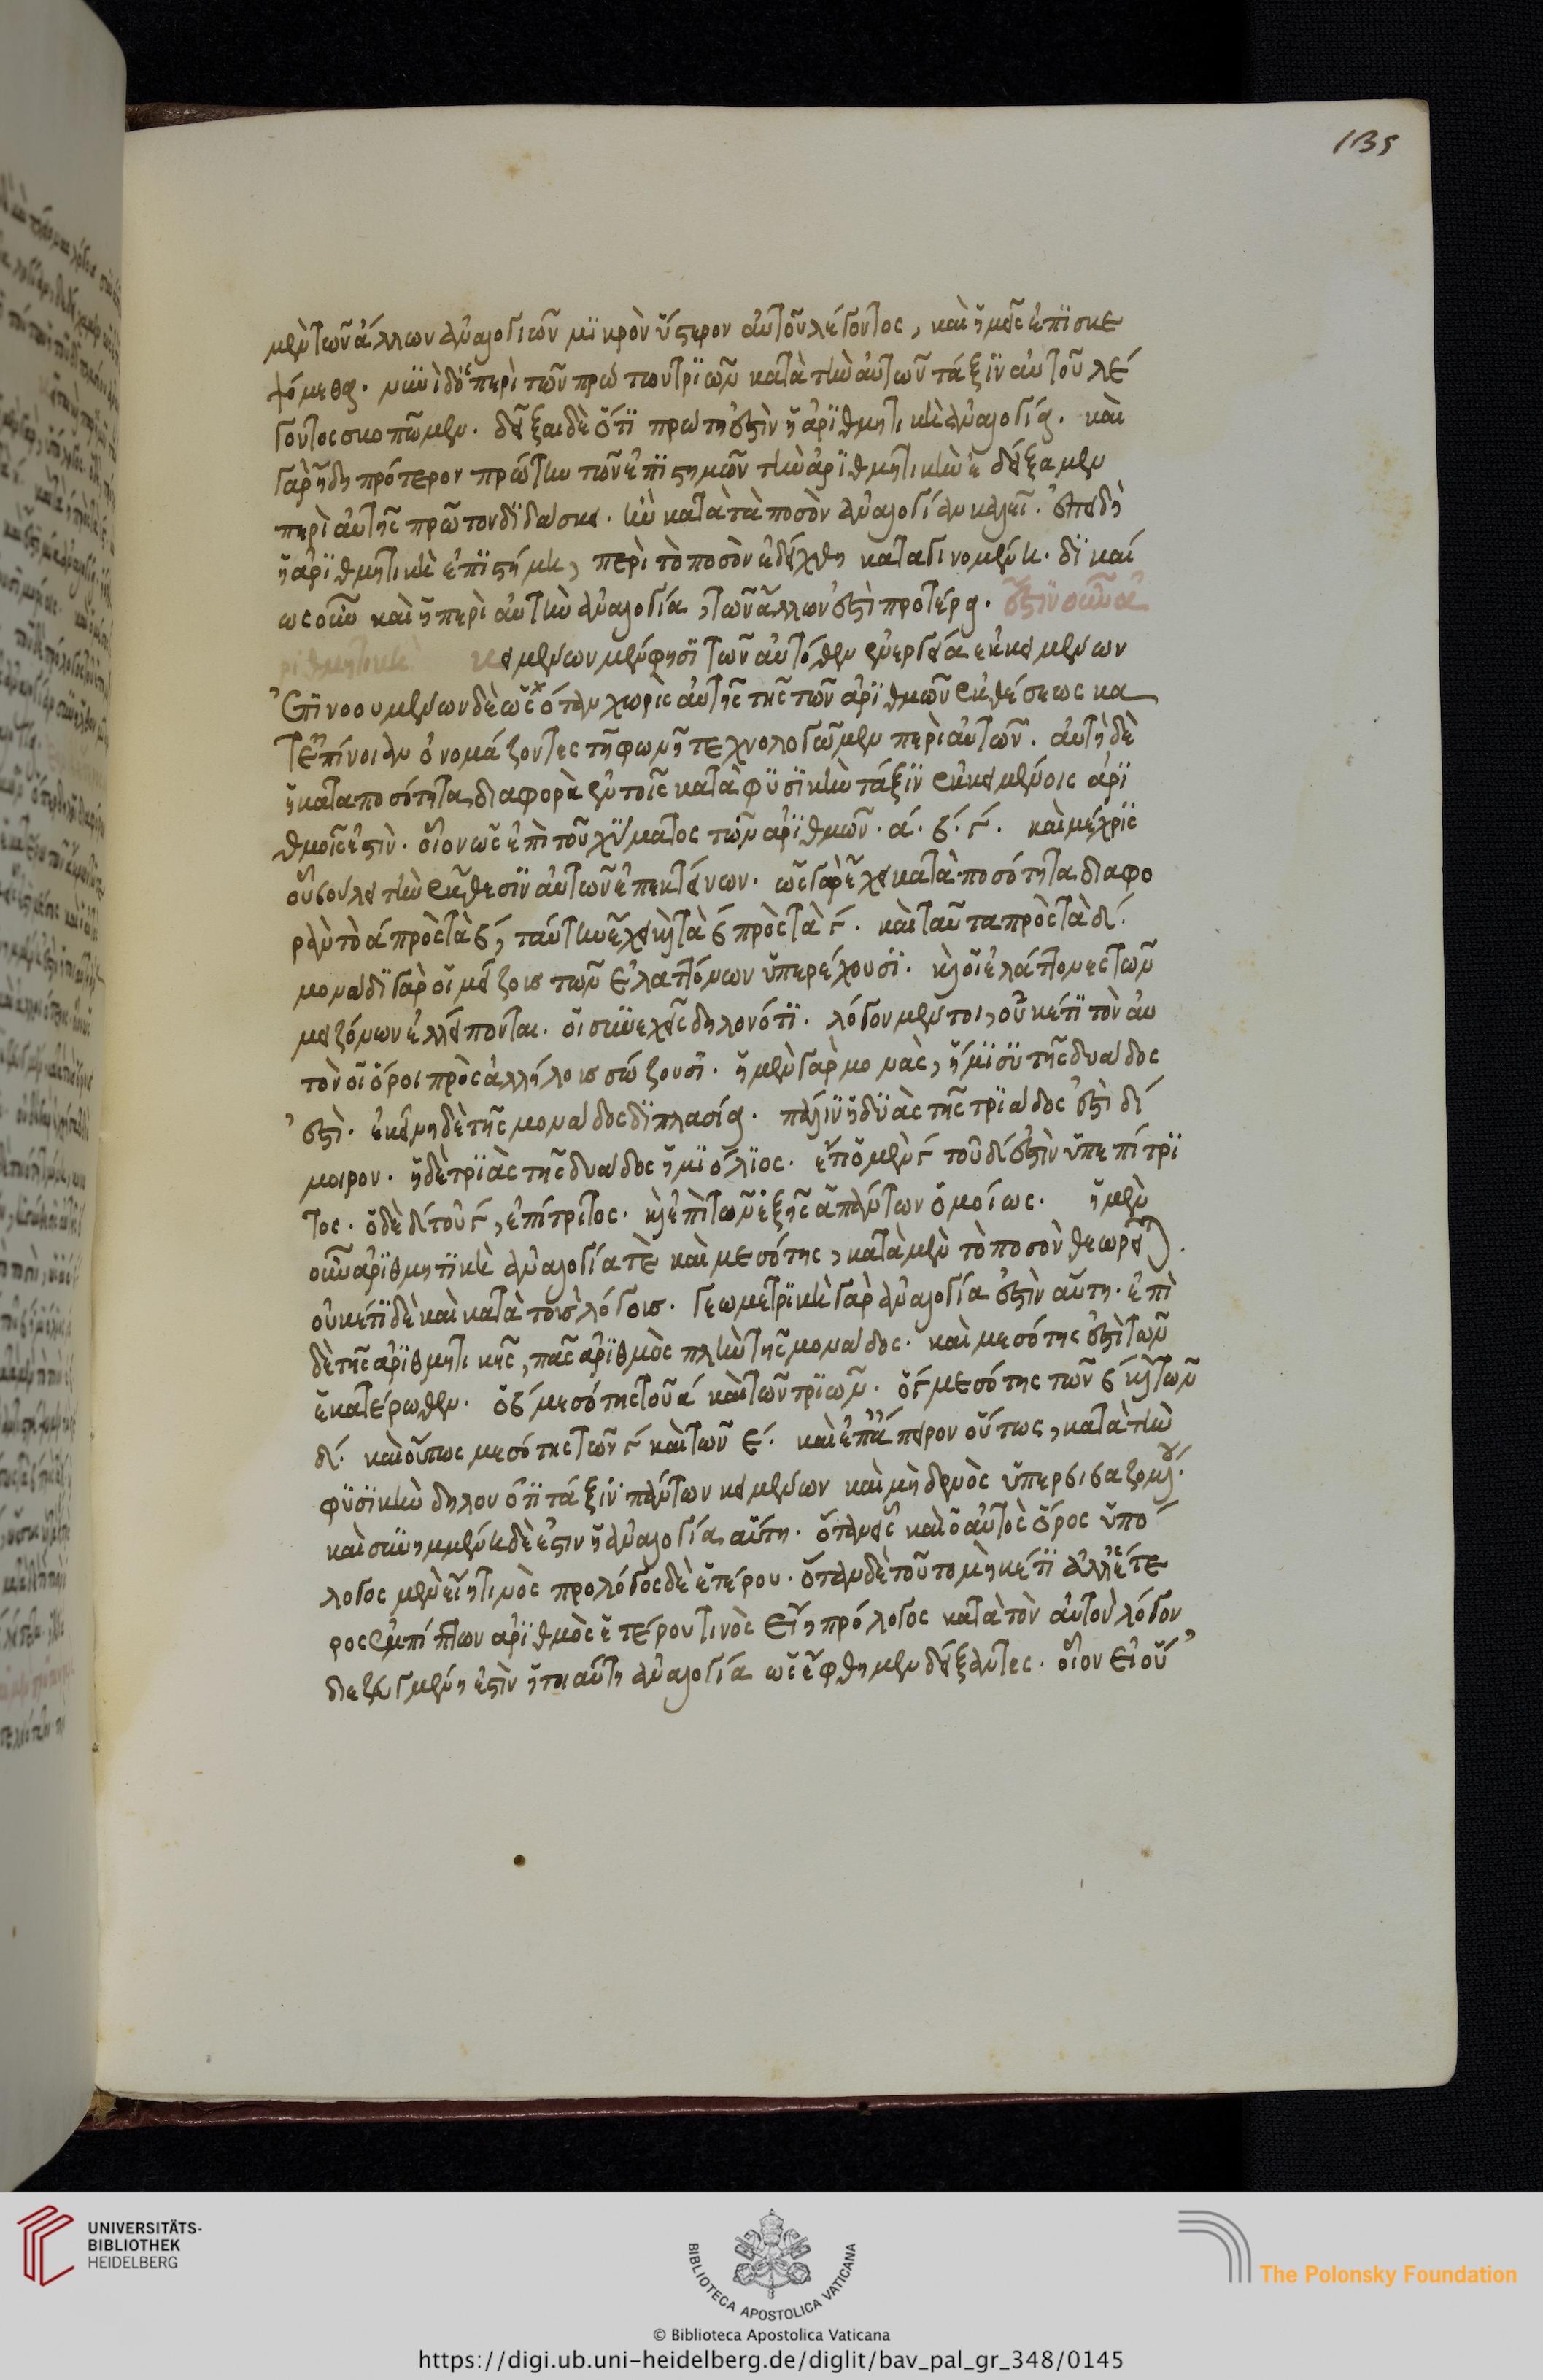 135
μὲν τῶν ἄλλων ἀναλογιῶν μϊκρὸν ὕστερον αὐτοῦ λέγοντος, καὶ ἡμεῖς ἐπϊσκε
ψόμεθα. νῦν ἰδίως περὶ τῶν πρώτων τρϊῶν κατὰ τὴν αὐτῶν τάξϊν αὐτοῦ λέ
γοντος σκοπῶμεν. δεῖξαι δὲ ὅτϊ πρώτη ἐστὶν ἡ ἀρϊθμητικὴ ἀναλογία. καὶ
γὰρ ἤδη πρότερον πρώτην τῶν ἐπϊστημῶν τὴν ἀρϊθμητικὴν ἐδείξαμεν
περὶ αὐτῆς πρῶτον δϊδάσκει. ἣν κατὰ τὰ ποσὸν ἀναλογίαν καλεῖ. ἐπειδὴ
ἡ ἀρϊθμητικὴ ἐπϊστήμη, περὶ τὸ ποσὸν ἐδείχθη καταγινομένη. δϊκαί
ως οὖν καὶ ἡ περὶ αὐτὴν ἀναλογία, τῶν ἄλλων ἐστὶ προτέρα. ἔστϊν οὖν ἀ
ριθμητικὴ κειμένων μὲν φησϊ τῶν αὐτόθεν ἐνεργείᾳ ἐκκειμένων
Ἐπϊνοουμένων δὲ ὡς ὅταν χωρὶς αὐτῆς τῆς τῶν ἀρϊθμῶν ἐκθέσεως κα
τ' ἐπίνοιαν ὀνομάζοντες τῇ φωνῇ τεχνολογῶμεν περὶ αὐτῶν. αὐτὴ δὲ
ἡ κατα ποσότητα διαφορὰ ἐν τοῖς κατὰ φϋσϊκὴν τάξϊν ἐκκειμένοις ἀρϊ
θμοῖς ἐστὶν. οἷον ὡς ἐπὶ τοῦ χΰματος τῶν ἀρϊθμῶν. α. β. γ. καὶ μέχρϊς
οὗ βούλει τὴν ἔκθεσϊν αὐτῶν ἐπεκτείνων. ὡς γὰρ ἔχει κατὰ ποσότητα διαφο
ρὰν τὸ α πρὸς τὰ β, ταύτην ἔχει καὶ τὰ β πρὸς τὰ γ. καὶ ταῦτα πρὸς τὰ δ.
μονάδϊ γὰρ οἱ μείζους τῶν ἐλαττόνων ὑπερέχουσϊ. καὶ οἱ ἐλάττονες τῶν
μειζόνων ἐλλείπονται. οἱ συνεχεῖς δηλονότϊ. λόγον μέντοι, οὐκέτϊ τὸν αὐ
τὸν οἱ ὅροι πρὸς ἀλλήλους σώζουσϊ. ἡ μὲν γὰρ μονὰς, ἥμϊσϋ τῆς δυάδος
ἐστὶ. ἐκείνη δὲ τῆς μονάδος δϊπλασία. πάλϊν ἡ δϋὰς τῆς τρϊάδος ἐστὶ δί
μοιρον. ἡ δὲ τρϊὰς τῆς δυάδος ἡμϊόλϊος. ἔτι ὁ μὲν γ τοῦ δ ἐστὶν ὑπεπίτρϊ
τος. ὁ δὲ δ τοῦ γ, ἐπίτριτος. καὶ ἐπὶ τῶν ἑξῆς ἁπάντων ὁμοίως. ἡ μὲν
οὖν ἀρϊθμητϊκὴ ἀναλογία τὲ καὶ μεσότης, κατὰ μὲν τὸ ποσὸν θεωρεῖται.
οὐκέτϊ δὲ καὶ κατὰ τοὺς λόγους. γεωμετρϊκὴ γὰρ ἀναλογία ἐστὶν αὕτη. ἐπὶ
δὲ τῆς ἀρϊθμητικῆς, πᾶς ἀρϊθμὸς πλὴν τῆς μονάδος. καὶ μεσότης ἐστὶ τῶν
ἑκατέρωθεν. ὁ β μεσότης τοῦ α καὶ τῶν τρϊῶν. ὁ γ μεσότης τῶν β καὶ τῶν
δ. καὶ οὕτως μεσότης τῶν γ καὶ τῶν ε. καὶ ἐπ' ἄπειρον οὕτως, κατὰ τὴν
φϋσϊκὴν δηλονότϊ τάξϊν πάντων κειμένων καὶ μὴδενὸς ὑπερβιβαζομένου.
καὶ συνημμένη δὲ ἐστιν ἡ ἀναλογία, αὕτη. ὅταν εἷς καὶ ὁ αὐτὸς ὅρος ὑπό
λογος μὲν εἴη τινὸς προλόγος δὲ ἑτέρου. ὅταν δὲ τοῦτο μὴκέτϊ ἀλλ' ἕτε
ρος ἐμπίπτων ἀρϊθμὸς ἑτέρου τινὸς εἴη πρόλογος κατὰ τὸν αὐτὸν λόγον
διεζευγμένη ἐστὶν ἡ τοιαύτη ἀναλογία ὡς ἔφθημεν δείξαντες. οἷον εἰ οὕ
UNIVERSITÄTS-
BIBLIOTHEK
HEIDELBERG
BIBLIOTECA APOSTOLICA VATICANA
The Polonsky Foundation
© Biblioteca Apostolica Vaticana
https://digi.ub.uni-heidelberg.de/diglit/bav_pal_gr_348/0145